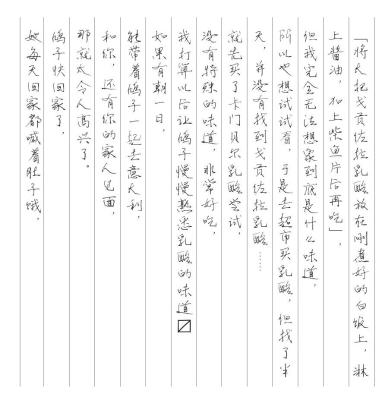 「将大把戈贡佐拉乳酪放在刚煮好的白饭上，淋
上酱油，加上柴鱼片后再吃」，
但我完全无法想象到底是什么味道，
所以也想试试看，于是去超市买乳酪，但找了半
天，并没有找到戈贡佐拉乳酪……
就先买了卡门贝尔乳酪尝试，
没有特殊的味道，非常好吃，
我打算以后让鸽子慢慢熟悉乳酪的味道〼
如果有朝一日，
能带着鸽子一起去意大利，
和你，还有你的家人见面，
那就太令人高兴了。
鸽子快回家了，
她每天回家都喊着肚子饿，